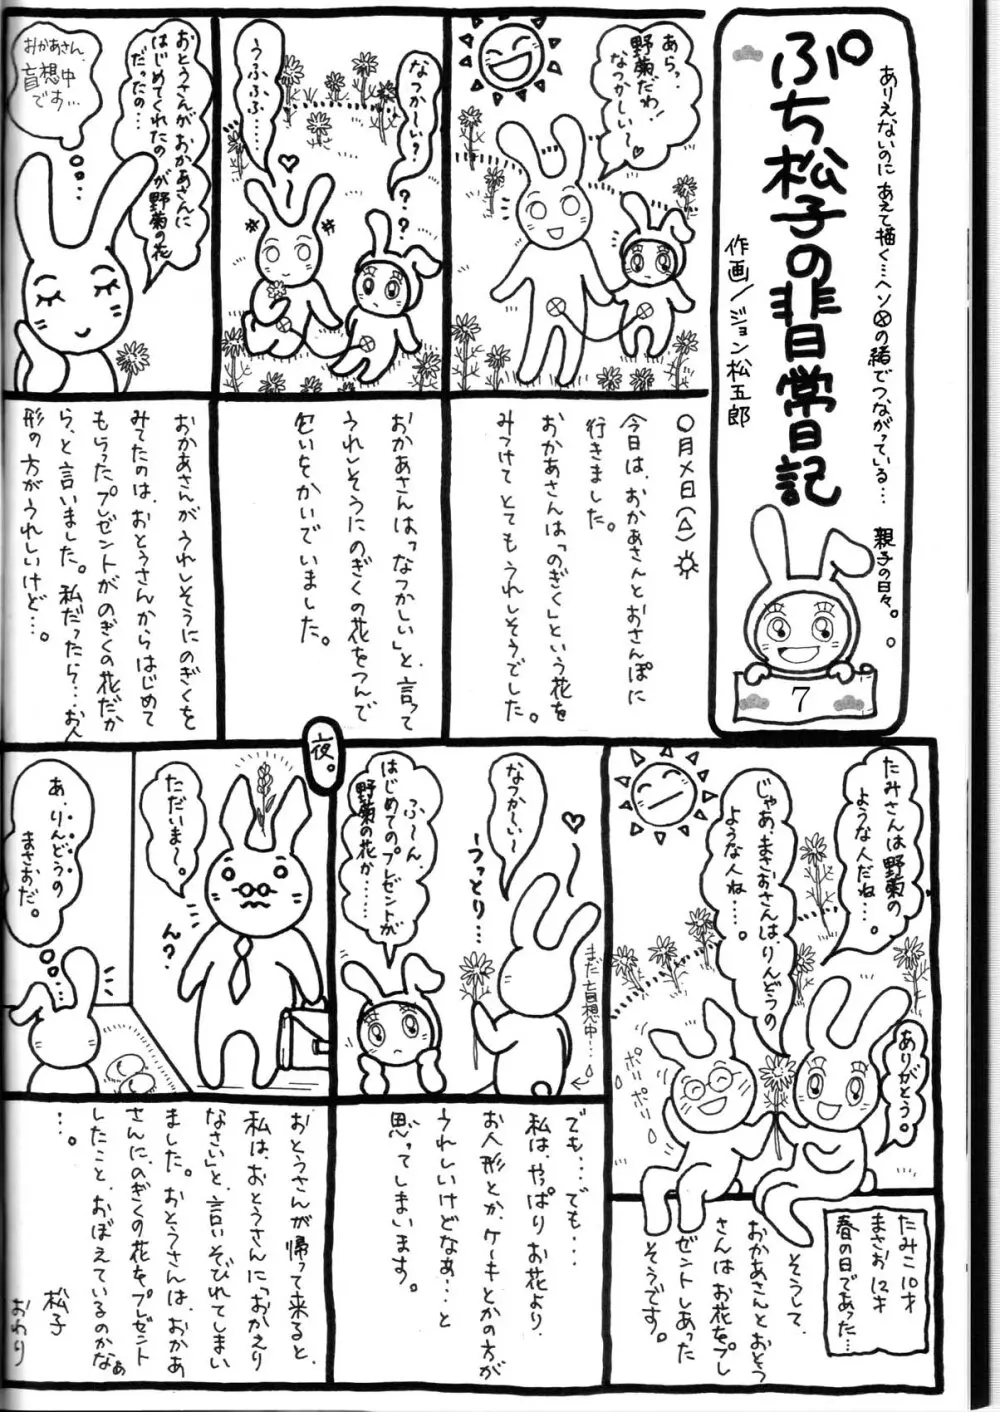 ありえないのに あえて描く…ヘソの緒でつながっている…
親子の日々。
ぷち松子の非日常日記
作画/ジョン松五郎
7
あらっ、
野菊だわ!
なつかし〜い〜♥
〇月×日(△)
今日は、おかあさんとおさんぽに
行きました。
おかあさんは「のぎく」という花を
みつけてとてもうれしそうでした。
なつかし〜い?
???
うふふふ…
おかあさんは「なつかしい」と、言って
うれしそうにのぎくの花をつんで
匂いをかいでいました。
おとうさんが おかあさんに
はじめてくれたのが野菊の花
だったの…
おかあさん、
盲想中
です…
おかあさんがうれしそうにのぎくを
みてたのは、おとうさんからはじめて
もらったプレゼントがのぎくの花だか
ら、と言いました。私だったら…お人
形の方がうれしいけど…。
たみさんは野菊の
ような人だね…。
じゃあ、まさおさんは、りんどうの
ような人ね…。
ありがとう。
ポリポリ
たみこ10才
まさお12才
春の日であった…
そうして、
おかあさんとおとう
さんは お花をプレ
ゼントしあった
そうです。
なつか〜い〜
〜うっとり…
まだ盲想中…
ふ〜ん、
はじめてのプレゼントが
野菊の花か……
でも…でも…
私は、やっぱりお花より、
お人形とか、ケーキとかの方が
うれしいけどなぁ…と
思ってしまいます。
夜。
ただいま〜。
ん?
あ、りんどうの
まさおだ。
おとうさんが帰って来ると、
私は、おとうさんに「おかえり
なさい」と、言いそびれてしまい
ました。おとうさんは、おかあ
さんにのぎくの花をプレゼント
したこと、おぼえているのかなぁ
…。
松子
おわり